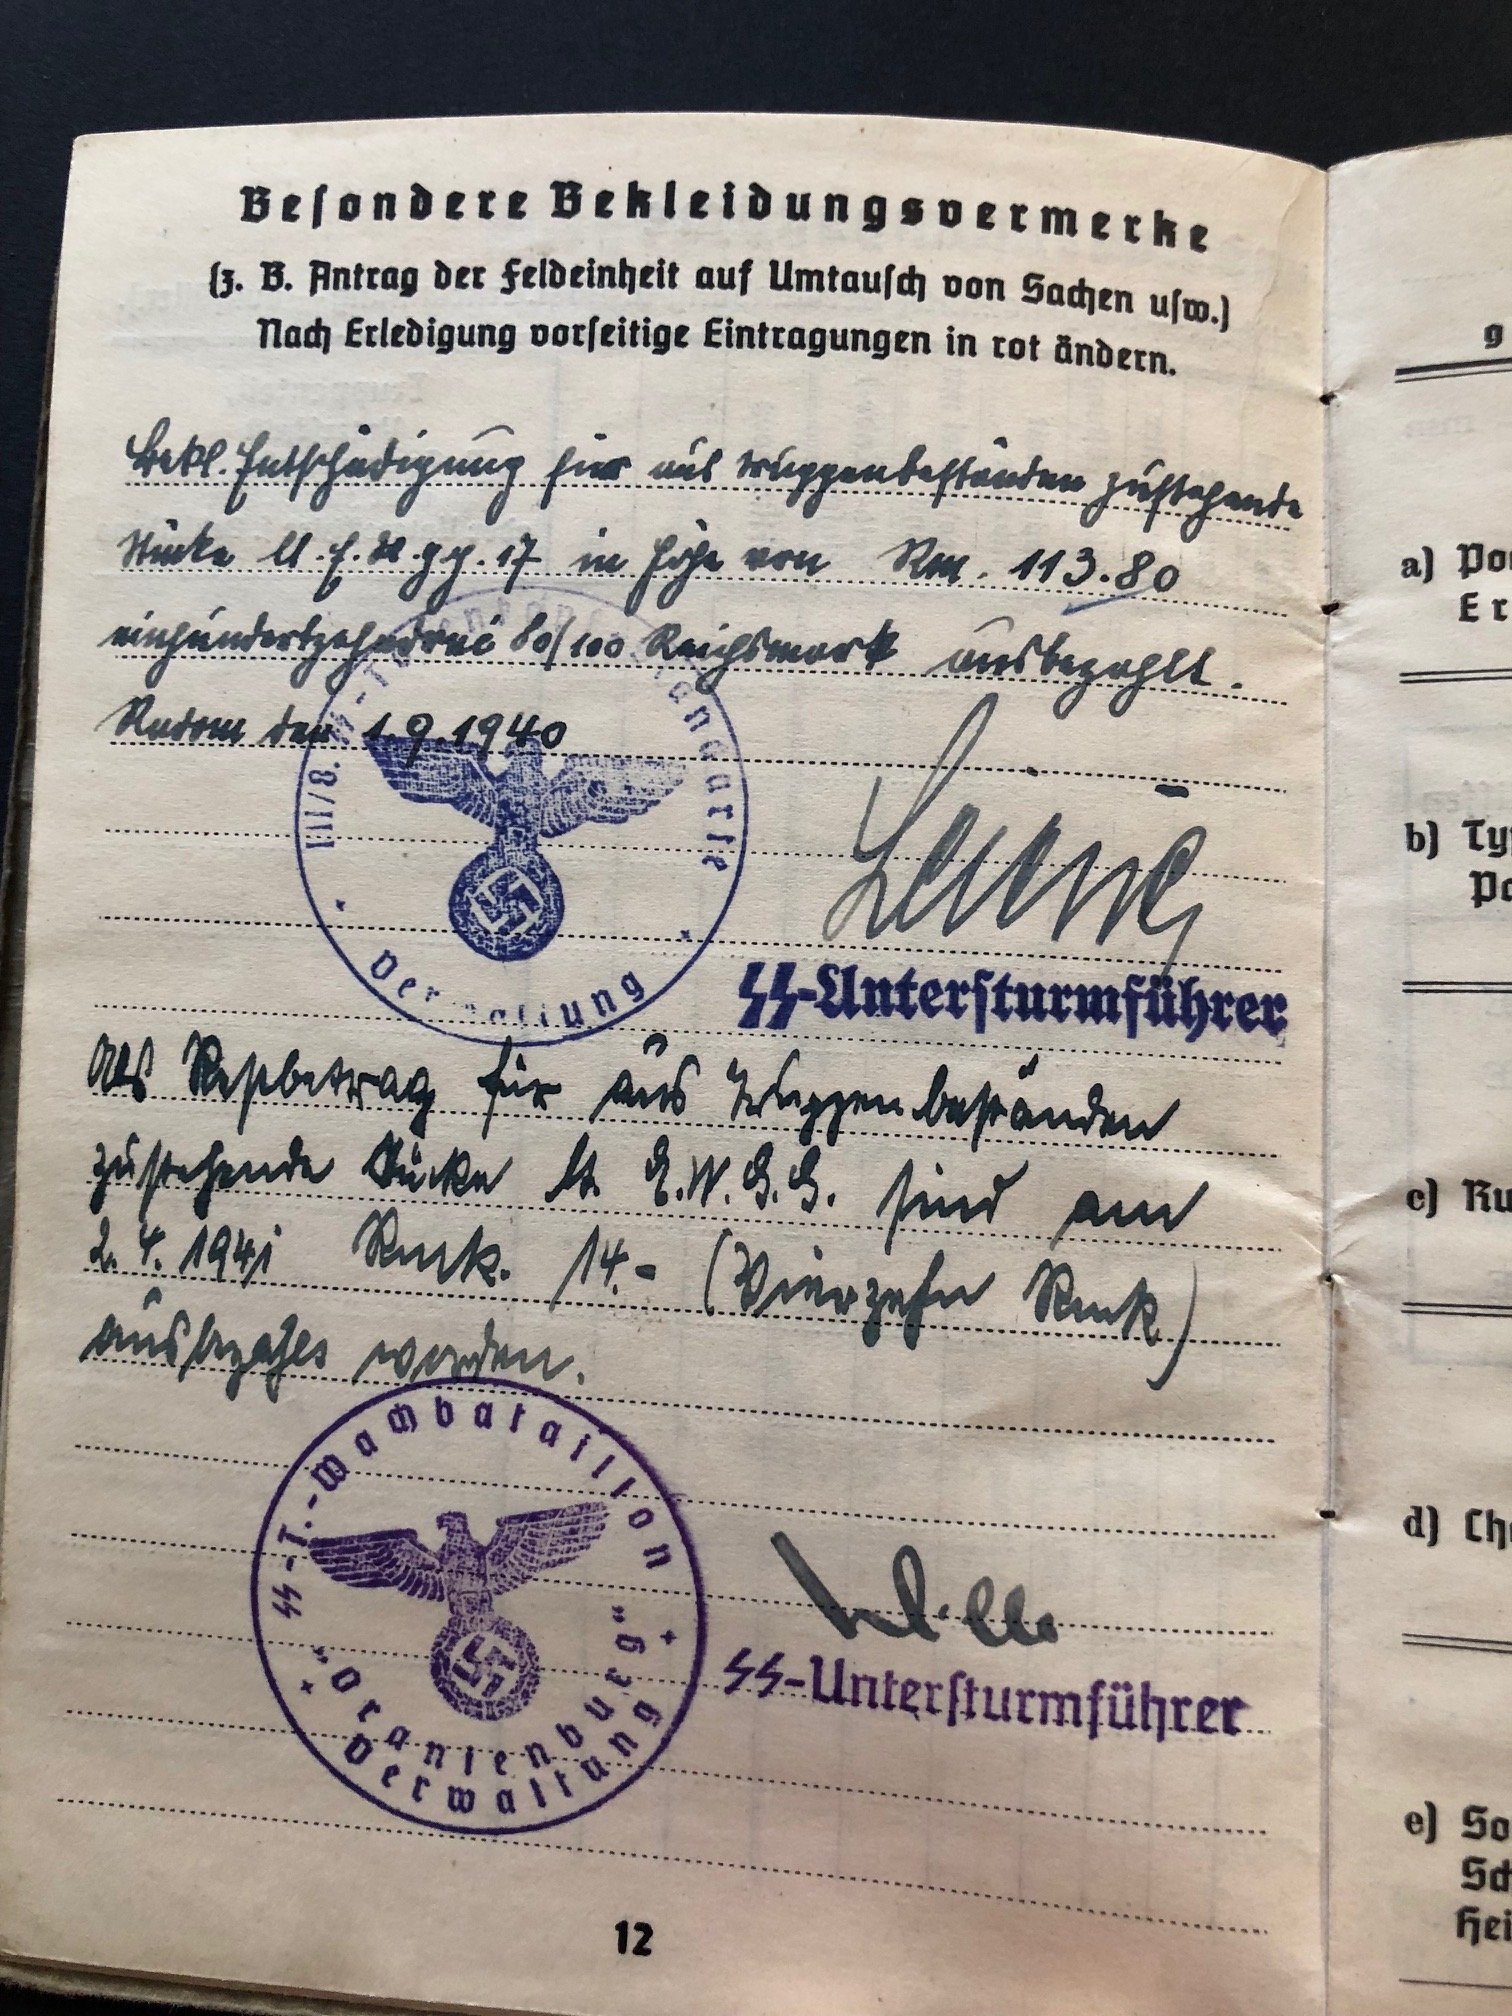 Besondere Bekleidungsvermerke
(z. B. Antrag der Feldeinheit auf Umtausch von Sachen usw.)
Nach Erledigung vorseitige Eintragungen in rot ändern.
Bekl. Entschädigung für aus Truppenbeständen zustehende
Stücke in Höhe von Rm. 113.80
einhundertzehndrei 80/100 Reichsmark ausbezahlt.
Radom den 1.9.1940
III/8. SS-T
Verwaltung
SS-Untersturmführer
Als Restbetrag für aus Truppenbeständen
zustehende Stücke lt. E.W.G.G. sind am
2.4.1941 Rmk. 14.- (Vierzehn Rmk)
ausbezahlt worden.
SS-T.-Wachbataillon
"Oranienburg"
Verwaltung
SS-Untersturmführer
12
a) Po
Er
b) Ty
c) Ku
d) Ch
e) So
Sch
Hei